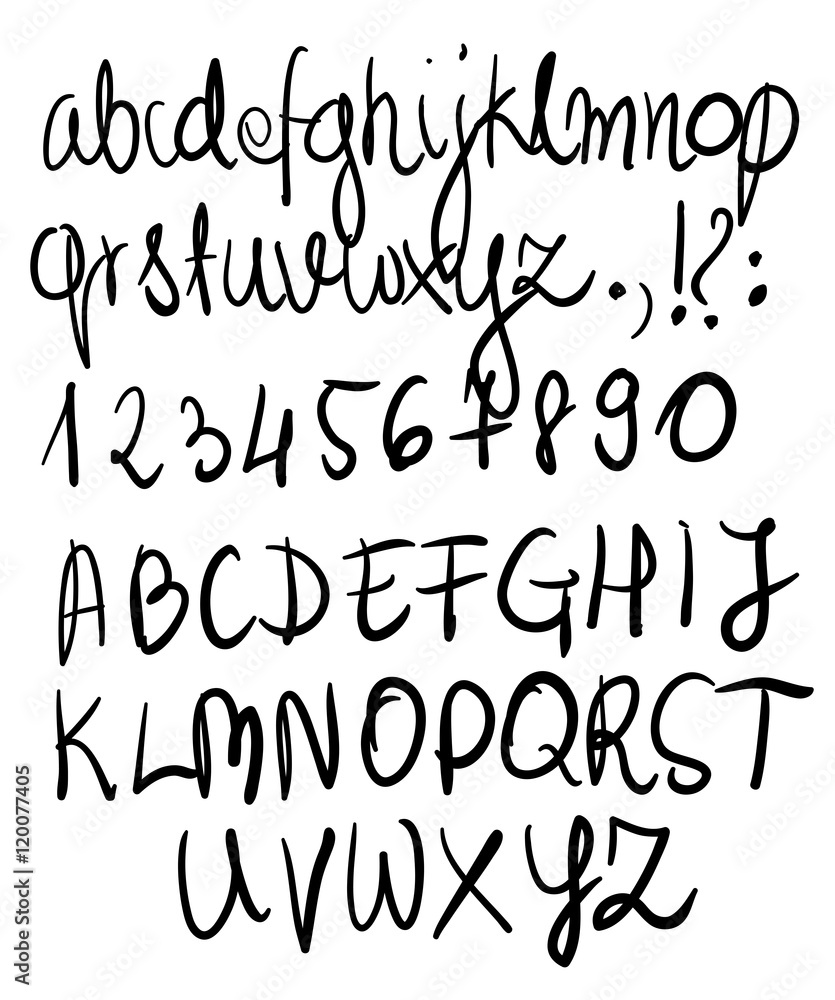 abcdefghijklmnop
qrstuvwxyz.,!?:
1234567890
ABCDEFGHIJ
KLMNOPQRST
UVWXYZ
Adobe Stock | #120077405